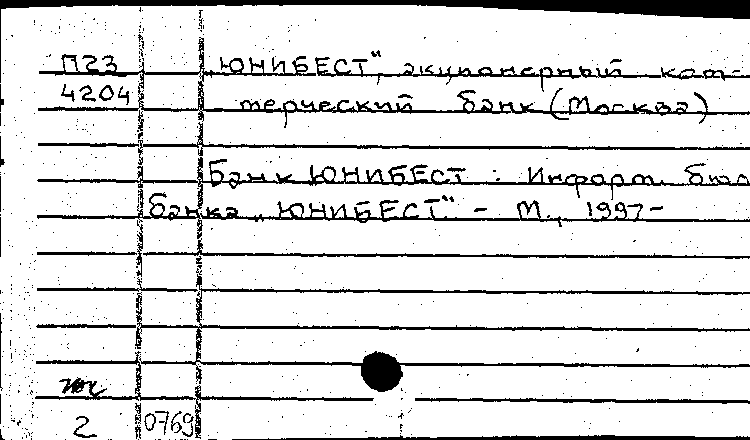 П23 „ЮНИБЕСТ", акционерный ком-
4204 мерческий банк (Москва)
Банк ЮНИБЕСТ : Информ. бюл
банка „ЮНИБЕСТ" - М., 1997-
2 0769